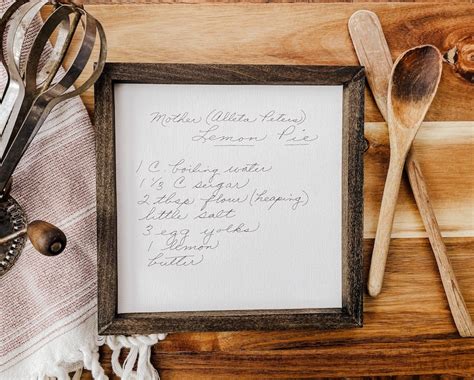 Mother (Alleta Peters)
Lemon Pie
1 C. boiling water
1 1/3 C sugar
2 tbsp flour (heaping)
little salt
3 egg yolks
1 lemon
butter